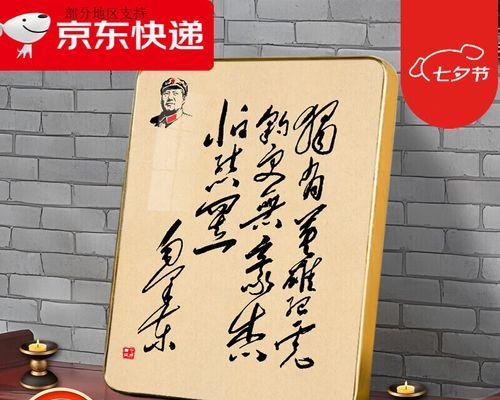 部分地区支持
京东快递
七夕节
獨有英雄驱虎
豹更無豪杰
怕熊羆
毛泽东